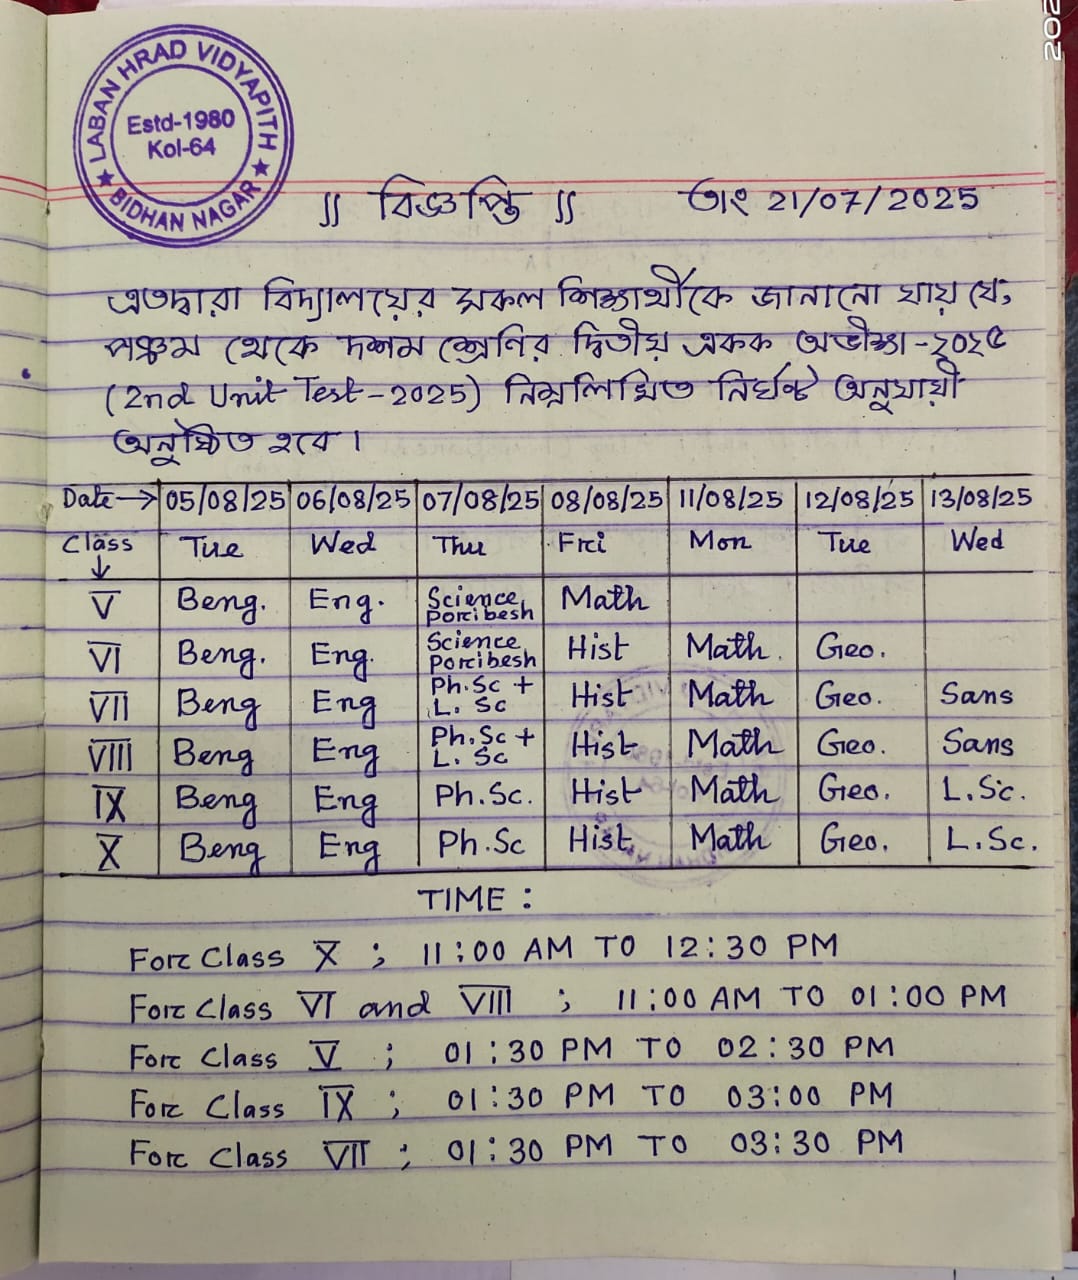 LABAN HRAD VIDYAPITH
Estd-1980
Kol-64
★ BIDHAN NAGAR ★
202
॥ বিজ্ঞপ্তি ॥ তাং 21/07/2025
এতদ্বারা বিদ্যালয়ের সকল শিক্ষার্থীকে জানানো যায় যে,
পঞ্চম থেকে দশম শ্রেণির দ্বিতীয় একক অভীক্ষা-২০২৫
(2nd Unit Test-2025) নিম্নলিখিত নির্ঘন্ট অনুযায়ী
অনুষ্ঠিত হবে।
Date→ 05/08/25 06/08/25 07/08/25 08/08/25 11/08/25 12/08/25 13/08/25
Class ↓ Tue Wed Thu Fri Mon Tue Wed
V Beng. Eng. Science Poribesh Math
VI Beng. Eng. Science Poribesh Hist Math. Geo.
VII Beng Eng Ph.Sc + L. Sc Hist Math Geo. Sans
VIII Beng Eng Ph.Sc + L. Sc Hist Math Geo. Sans
IX Beng Eng Ph.Sc. Hist Math Geo. L.Sc.
X Beng Eng Ph.Sc Hist Math Geo. L.Sc.
TIME :
For Class X ; 11:00 AM TO 12:30 PM
For Class VI and VIII ; 11:00 AM TO 01:00 PM
For Class V ; 01:30 PM TO 02:30 PM
For Class IX ; 01:30 PM TO 03:00 PM
For Class VII ; 01:30 PM TO 03:30 PM